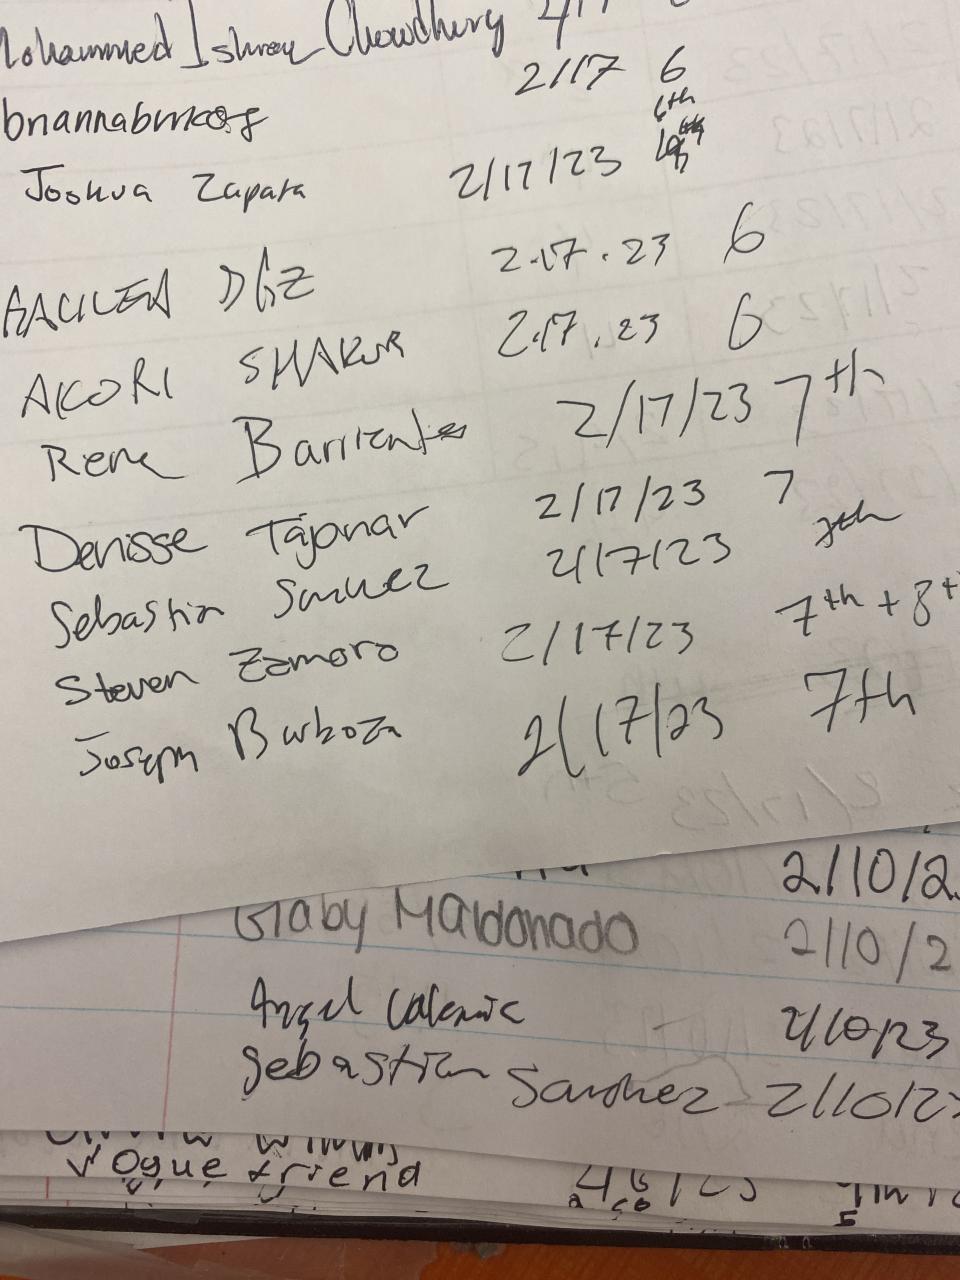 Mohammed Chowdhury
2/17 6
Joshua Zapata 2/17/23 6th
DGZ 2.17.23 6
AKORI SHAKUR 2.17.23 6
Rene Barrientos 2/17/23 7th
Denisse Tajonar 2/17/23 7
Sebastian 2/17/23 7th
Steven Zamora 2/17/23 7th + 8t
Joseph Barboza 2/17/23 7th
2/10/2
Gaby Maldonado 2/10/2
Angel 2/10/23
Sebastian Sanchez 2/10/23
Vogue friend